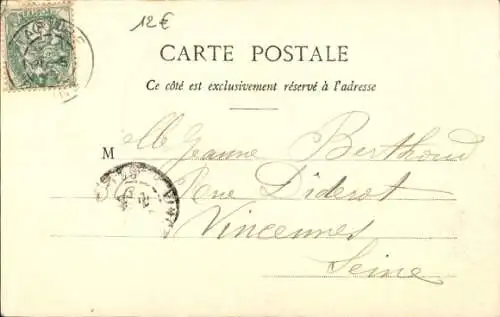 12 €
CARTE POSTALE
Ce côté est exclusivement réservé à l'adresse
Melle Jeanne Berthoud
Rue Diderot
Vincennes
Seine